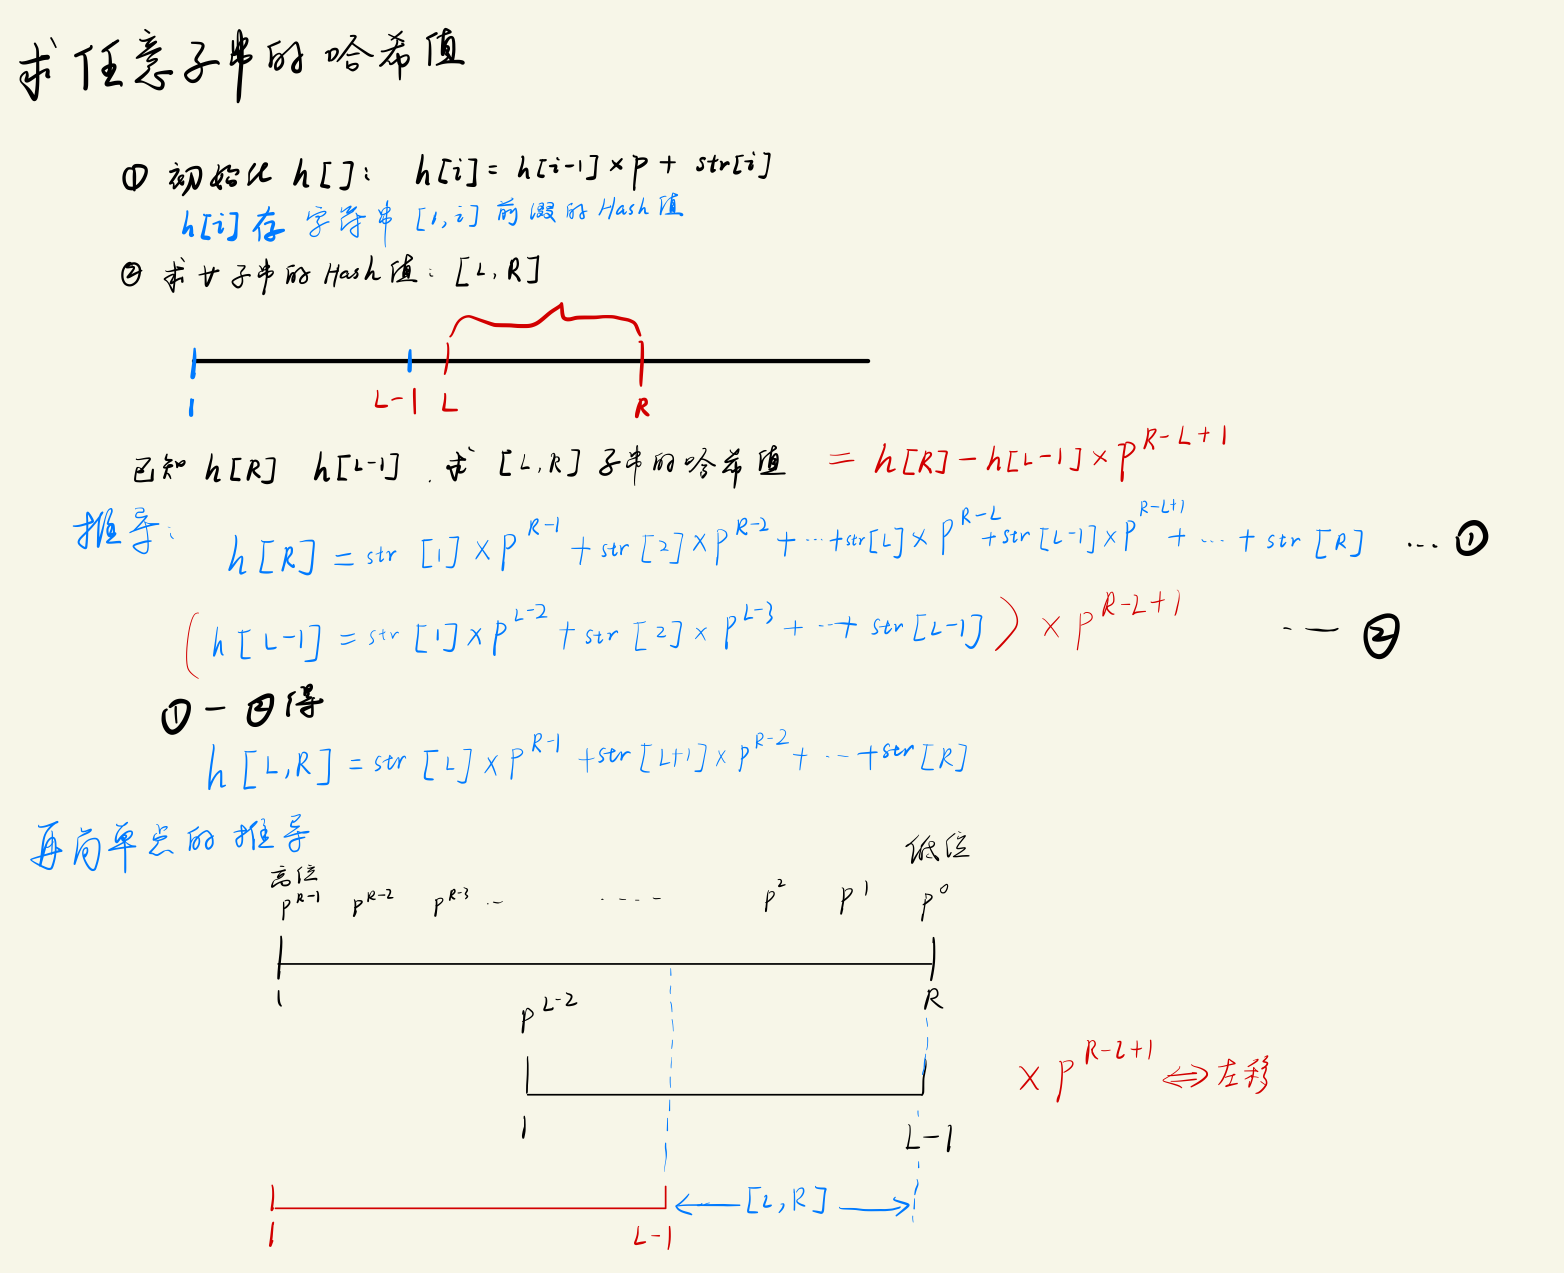 求任意子串的哈希值
① 初始化 h[]: h[i]=h[i-1]×p+str[i]
h[i]存 字符串 [1,i] 前缀的Hash值
② 求∀子串的Hash值: [L,R]
1 L-1 L R
已知 h[R] h[L-1] 求 [L,R] 子串的哈希值 = h[R]-h[L-1]×p^{R-L+1}
推导: h[R]=str[1]×p^{R-1}+str[2]×p^{R-2}+…+str[L]×p^{R-L}+str[L-1]×p^{R-L+1}+…+str[R] …①
(h[L-1]=str[1]×p^{L-2}+str[2]×p^{L-3}+…+str[L-1])×p^{R-L+1} …②
①-②得
h[L,R]=str[L]×p^{R-1}+str[L+1]×p^{R-2}+…+str[R]
再简单点的推导
高位 低位
p^{R-1} p^{R-2} p^{R-3} … …… p^2 p^1 p^0
1 R
p^{L-2}
×p^{R-L+1}⇔左移
1 L-1
[L,R]
1 L-1